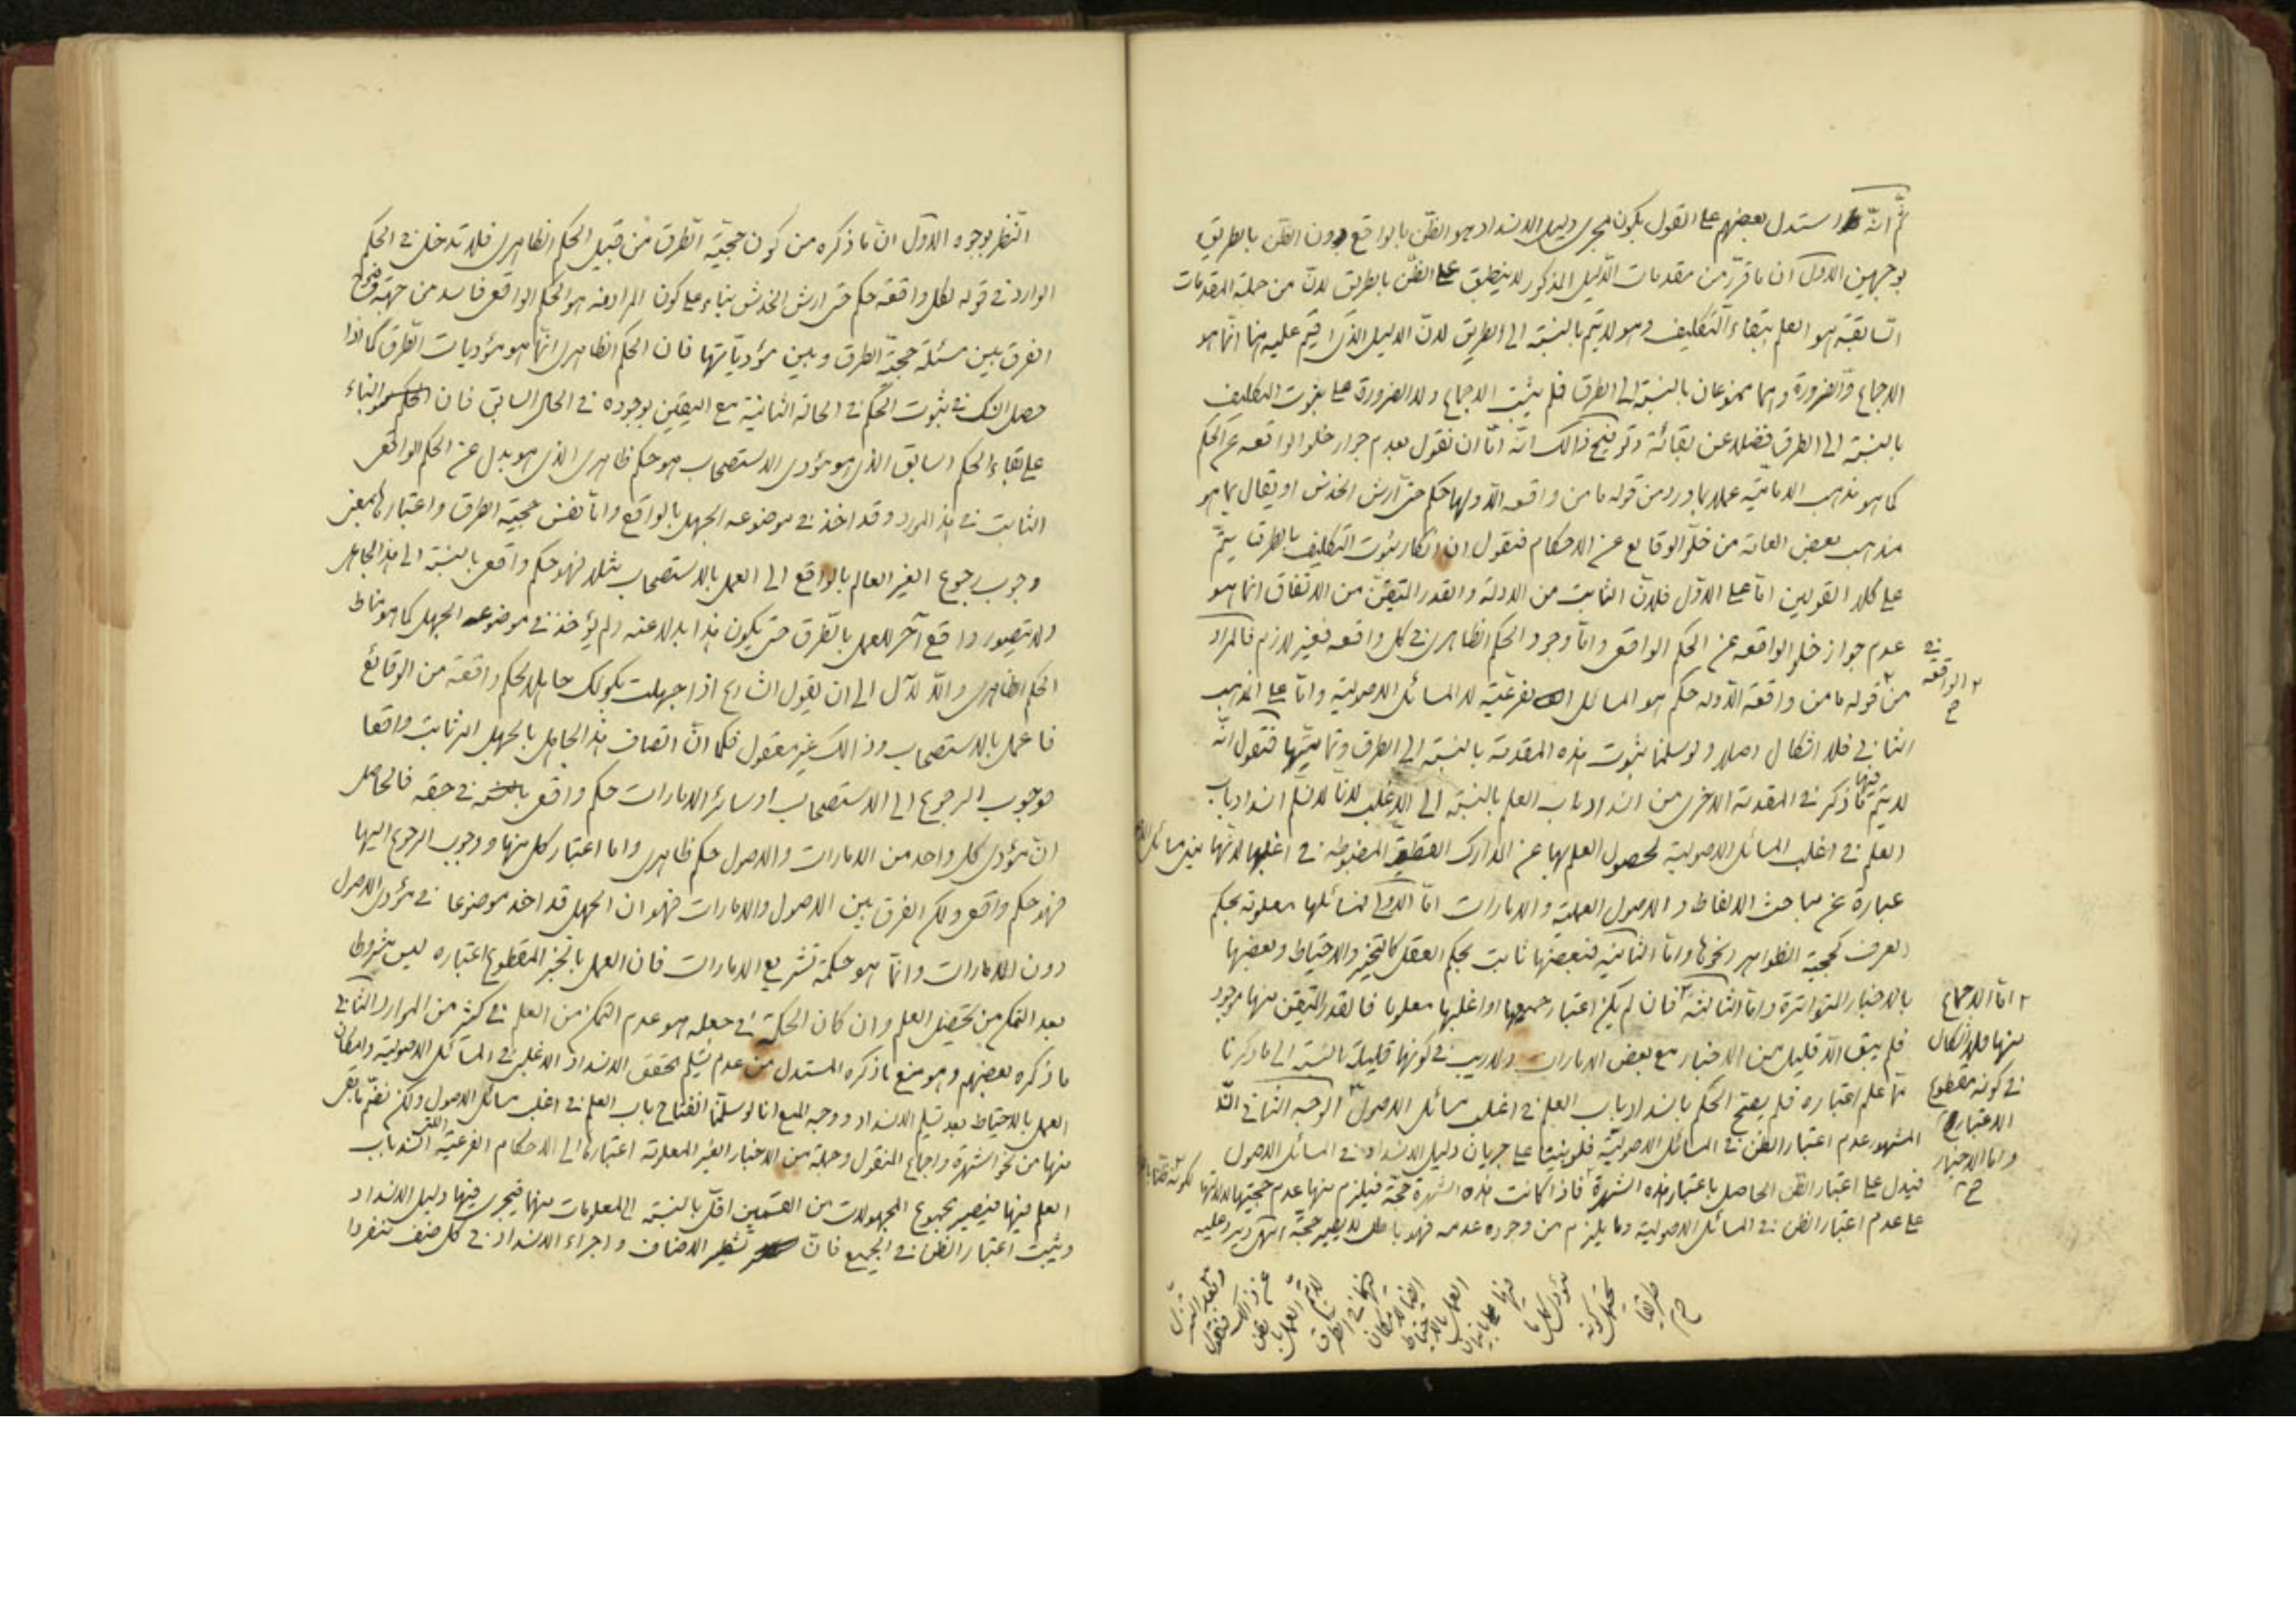 ثمّ انّه استدل بعضهم على القول بكون مجرى دليل الانسداد هو الظنّ بالواقع دون الظن بالطريق
بوجهين الاول ان ما قرّر من مقدمات الدّليل المذكور لا ينطبق على الظن بالطريق لانّ من جملة المقدمات
السّابقة هو العلم ببقاء التكليف وهو لا يتم بالنسبة الى الطريق لانّ الدليل الذى اقيم عليه هنا انّما هو
الاجماع والضرورة وهما ممنوعان بالنسبة الى الطرق فلم يثبت الاجماع ولا الضرورة على ثبوت التكليف
بالنسبة الى الطرق فضلا عن بقائه وتوضيح ذالك انّه امّا ان نقول بعدم جواز خلو الواقعه عن الحكم
كما هو مذهب الاماميّة عملا بما ورد من قوله ما من واقعه الّا ولها حكم حتى ارش الخدش او يقال بما هو
مذهب بعض العامة من خلوّ الوقايع عن الاحكام فنقول ان انكار ثبوت التكليف بالطرق يتمّ
على كلا القولين امّا على الاوّل فلانّ الثابت من الادلة والقدر المتيقّن من الاتفاق انما هو
عدم جواز خلو الواقعه عن الحكم الواقعى وامّا وجود الحكم الظاهرى فى كل واقعه فغير لازم فالمراد
من قوله ما من واقعة الّا وله حكم هو المسائل الفرعيّة لا المسائل الاصولية وامّا على المذهب
الثانى فلا اشكال اصلا ولو سلمنا ثبوت هذه المقدمة بالنسبة الى الطرق وتماميّتها فنقول انّه
لا يتم فيها ما ذكر فى المقدمة الاخرى من انسداد باب العلم بالنسبة الى الاغلب لانّا لا نسلّم انسداد باب
العلم فى اغلب المسائل الاصولية لحصول العلم بها عن المدارك القطعيّة المضبوطه فى اغلبها لانّها
عبارة عن مباحث الالفاظ والاصول العملية والامارات امّا الاولى فمسائلها معلومة بحكم
العرف كحجية الظواهر ونحوها وامّا الثانية فبعضها ثابت بحكم العقل كالتخيير والاحتياط وبعضها
بالاخبار المتواترة وامّا الثالثة فان لم يكن اعتبار جميعها او اغلبها معلوما فالقدر المتيقّن منها موجود
فلم يبق الّا قليل من الاخبار مع بعض الامارات ولا ريب فى كونها قليلة بالنسبة الى ما ذكرنا
ممّا علم اعتباره فلم يصح الحكم بانسداد باب العلم فى اغلب مسائل الاصول الوجه الثانى انّ
المشهور عدم اعتبار الظن فى المسائل الاصوليّة فلو بنينا على جريان دليل الانسداد فى المسائل الاصول
فيدل على اعتبار الظنّ الحاصل باعتبار هذه الشهرة فاذا كانت هذه الشهرة حجّة فيلزم منها عدم حجيتها لدلالتها
على عدم اعتبار الظن فى المسائل الاصولية وما يلزم من وجوده عدمه فهو باطل لا يصير حجّة انتهى ويرد عليه
فى
الواقعه
امّا الاجماع
منها فلا اشكال
فى كونه مقطوع
الاعتبار
وامّا الاخبار
عن ذالك فنقول
لا يتم العمل بالظن
فيها فى الطرق
ايضا لامكان
العمل بالاحتياط
مؤدى كل ما
يحتمل كونه
طريقا
النظر بوجوه الاوّل انّ ما ذكره من كون حجيّة الطرق من قبيل الحكم الظاهرى فلا تدخل فى الحكم
الوارد فى قوله لكل واقعة حكم حتى ارش الخدش بناء على كون المراد منه هو الحكم الواقعى فاسد من جهة وضوح
الفرق بين مسئلة حجيّة الطرق وبين مؤديّاتها فان الحكم الظاهرى انّما هو مؤديات الطرق كما اذا
حصل الشك فى ثبوت الحكم فى الحالة الثانية مع اليقين بوجوده فى الحال السابق فان البناء
على بقاء الحكم السابق الذى هو مؤدى الاستصحاب هو حكم ظاهرى الذى هو بدل عن الحكم الواقعى
الثابت فى هذا المورد وقد اخذ فى موضوعه الجهل بالواقع وامّا نفس حجية الطرق واعتبارها بمعنى
وجوب رجوع الغير العالم بالواقع الى العمل بالاستصحاب مثلا فهو حكم واقعى بالنسبة الى هذا الجاهل
ولا يتصور واقع آخر للعمل بالطرق حتى يكون هذا بدلا عنه ولم يؤخذ فى موضوعه الجهل كما هو مناط
الحكم الظاهرى والّا لآل الى ان يقول الشارع اذا جهلت بكونك جاهلا لحكم واقعة من الوقائع
فاعمل بالاستصحاب وذالك غير معقول فكما انّ اتصاف هذا الجاهل بالجهل امر ثابت واقعا
فوجوب الرجوع الى الاستصحاب او سائر الامارات حكم واقعى فى حقه فالحاصل
انّ مؤدى كل واحد من الامارات والاصول حكم ظاهرى واما اعتبار كل منها ووجوب الرجوع اليها
فهو حكم واقعى ولكن الفرق بين الاصول والامارات فهو ان الجهل قد اخذ موضوعا فى مؤدى الاصول
دون الامارات وانّما هو حكمة تشريع الامارات فان العمل بالخبر المقطوع اعتباره ليس مشروطا
بعد التمكن من تحصيل العلم وان كان الحكمة فى جعله هو عدم التمكن من العلم فى كثير من الموارد الثانى
ما ذكره بعضهم وهو منع ما ذكره المستدل من عدم تسليم تحقق الانسداد الاغلبى فى المسائل الاصولية وامكان
العمل بالاحتياط بعد تسليم الانسداد ووجه المنع انا لو سلّمنا انفتاح باب العلم فى اغلب مسائل الاصول ولكن نضمّ ما بقى
منها من نحو الشهرة واجماع المنقول وجملة من الاخبار الغير المعلومة اعتبارها الى الاحكام الفرعيّة التى انسد باب
العلم فيها فيصير مجموع المجهولات من القسمين اقلّ بالنسبة الى المعلومات منهما فيجرى فيها دليل الانسداد
ويثبت اعتبار الظن فى الجميع فانّ تشطير الاصناف واجراء الانسداد فى كل صنف منفردا